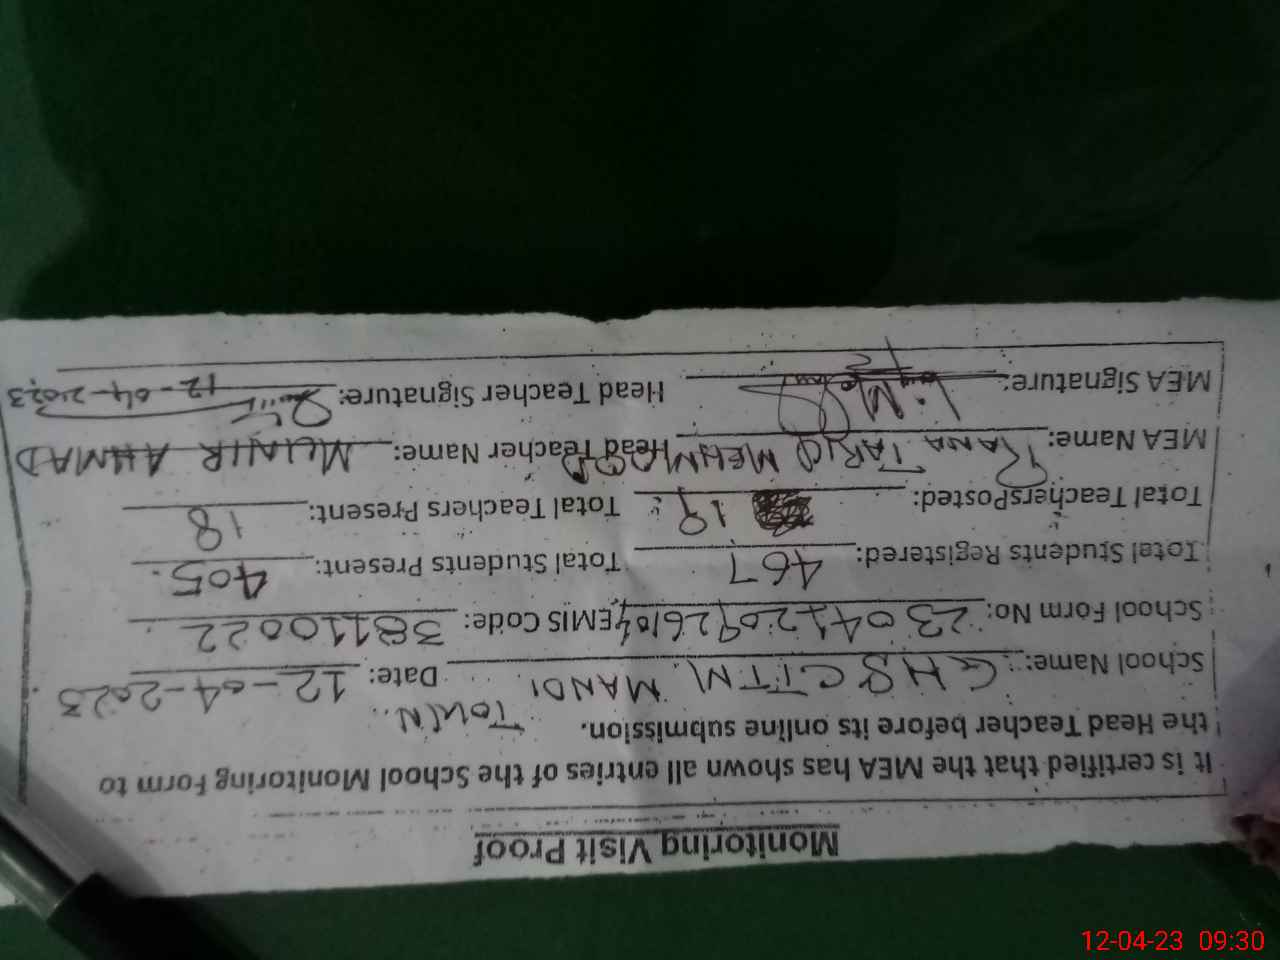 Monitoring Visit Proof
It is certified that the MEA has shown all entries of the School Monitoring Form to
the Head Teacher before its online submission.
TOWN.
School Name: GHS CTTM MANDI Date: 12-04-2023
School Form No: EMIS Code: 38110022
Total Students Registered: 467 Total Students Present: 405
Total TeachersPosted: 19 Total Teachers Present: 18
MEA Name: RANA TARIQ MEHMOOD Head Teacher Name: MUNIR AHMAD
MEA Signature: Head Teacher Signature: 12-04-2023
12-04-23 09:30